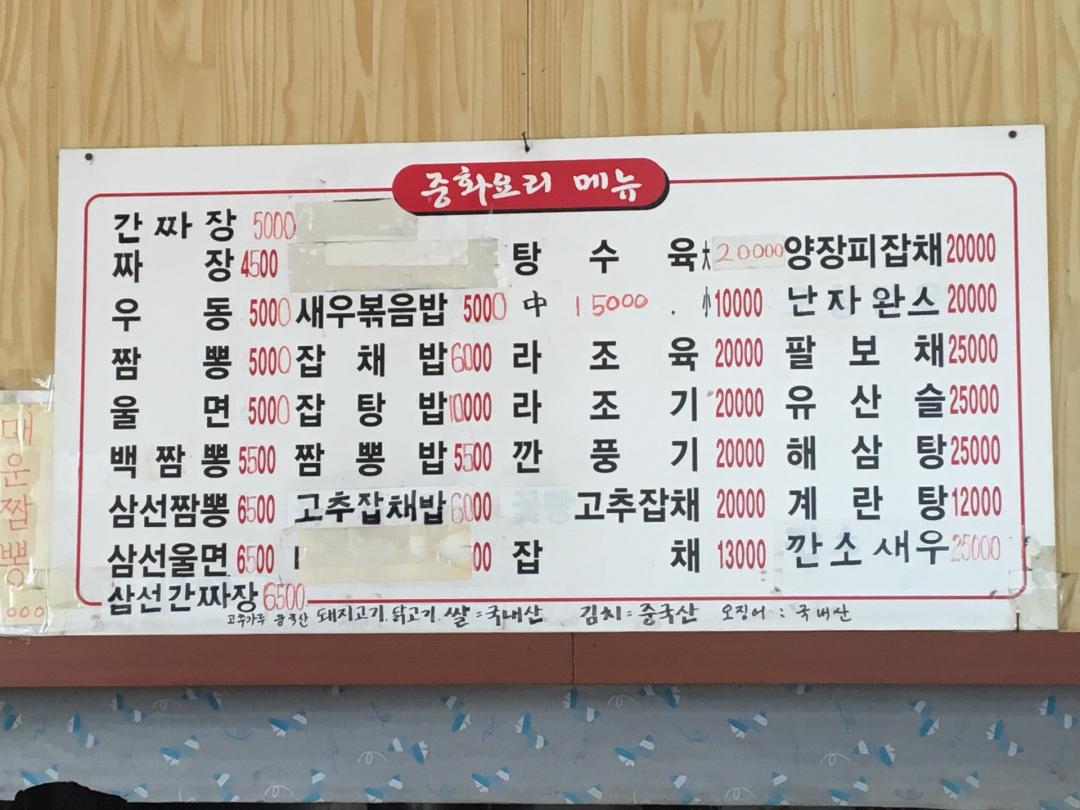 중화요리 메뉴
간짜장 5000
짜장 4500
우동 5000
짬뽕 5000
울면 5000
백짬뽕 5500
삼선짬뽕 6500
삼선울면 6500
삼선간짜장 6500
새우볶음밥 5000
잡채밥 6000
잡탕밥 10000
짬뽕밥 5500
고추잡채밥 6000
00
탕수육 大 20000
中 15000 . 小 10000
라조육 20000
라조기 20000
깐풍기 20000
고추잡채 20000
잡채 13000
양장피잡채 20000
난자완스 20000
팔보채 25000
유산슬 25000
해삼탕 25000
계란탕 12000
깐소새우 25000
고추가루 중국산 돼지고기. 닭고기. 쌀=국내산 김치=중국산 오징어:국내산
매운짬뽕
000